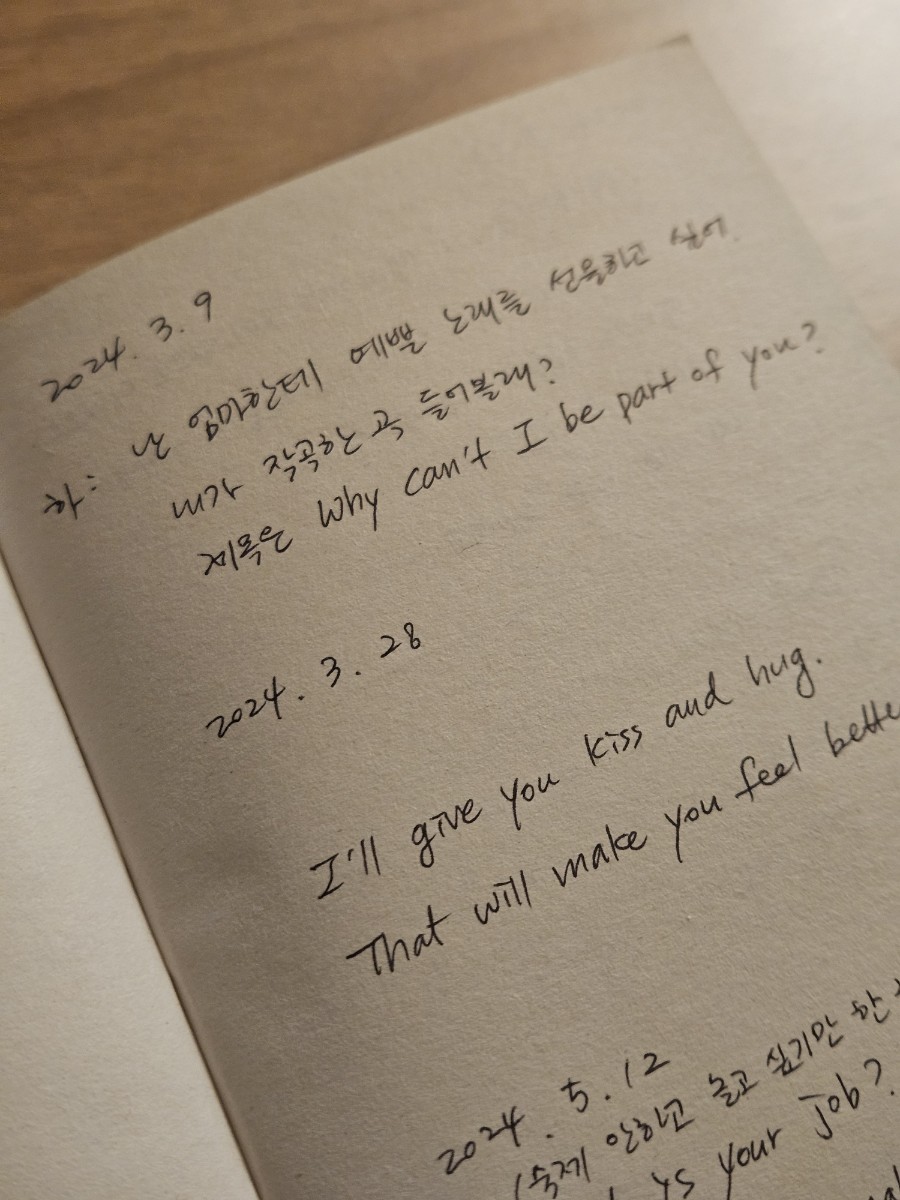 2024. 3. 9
하: 난 엄마한테 예쁜 노래를 선물하고 싶어.
내가 작곡하는 곡 들어볼래?
제목은 Why can't I be part of you?
2024. 3. 28
I'll give you kiss and hug.
That will make you feel bette
2024. 5. 12
(숙제 안하고 놀고 싶기만 한
your job?